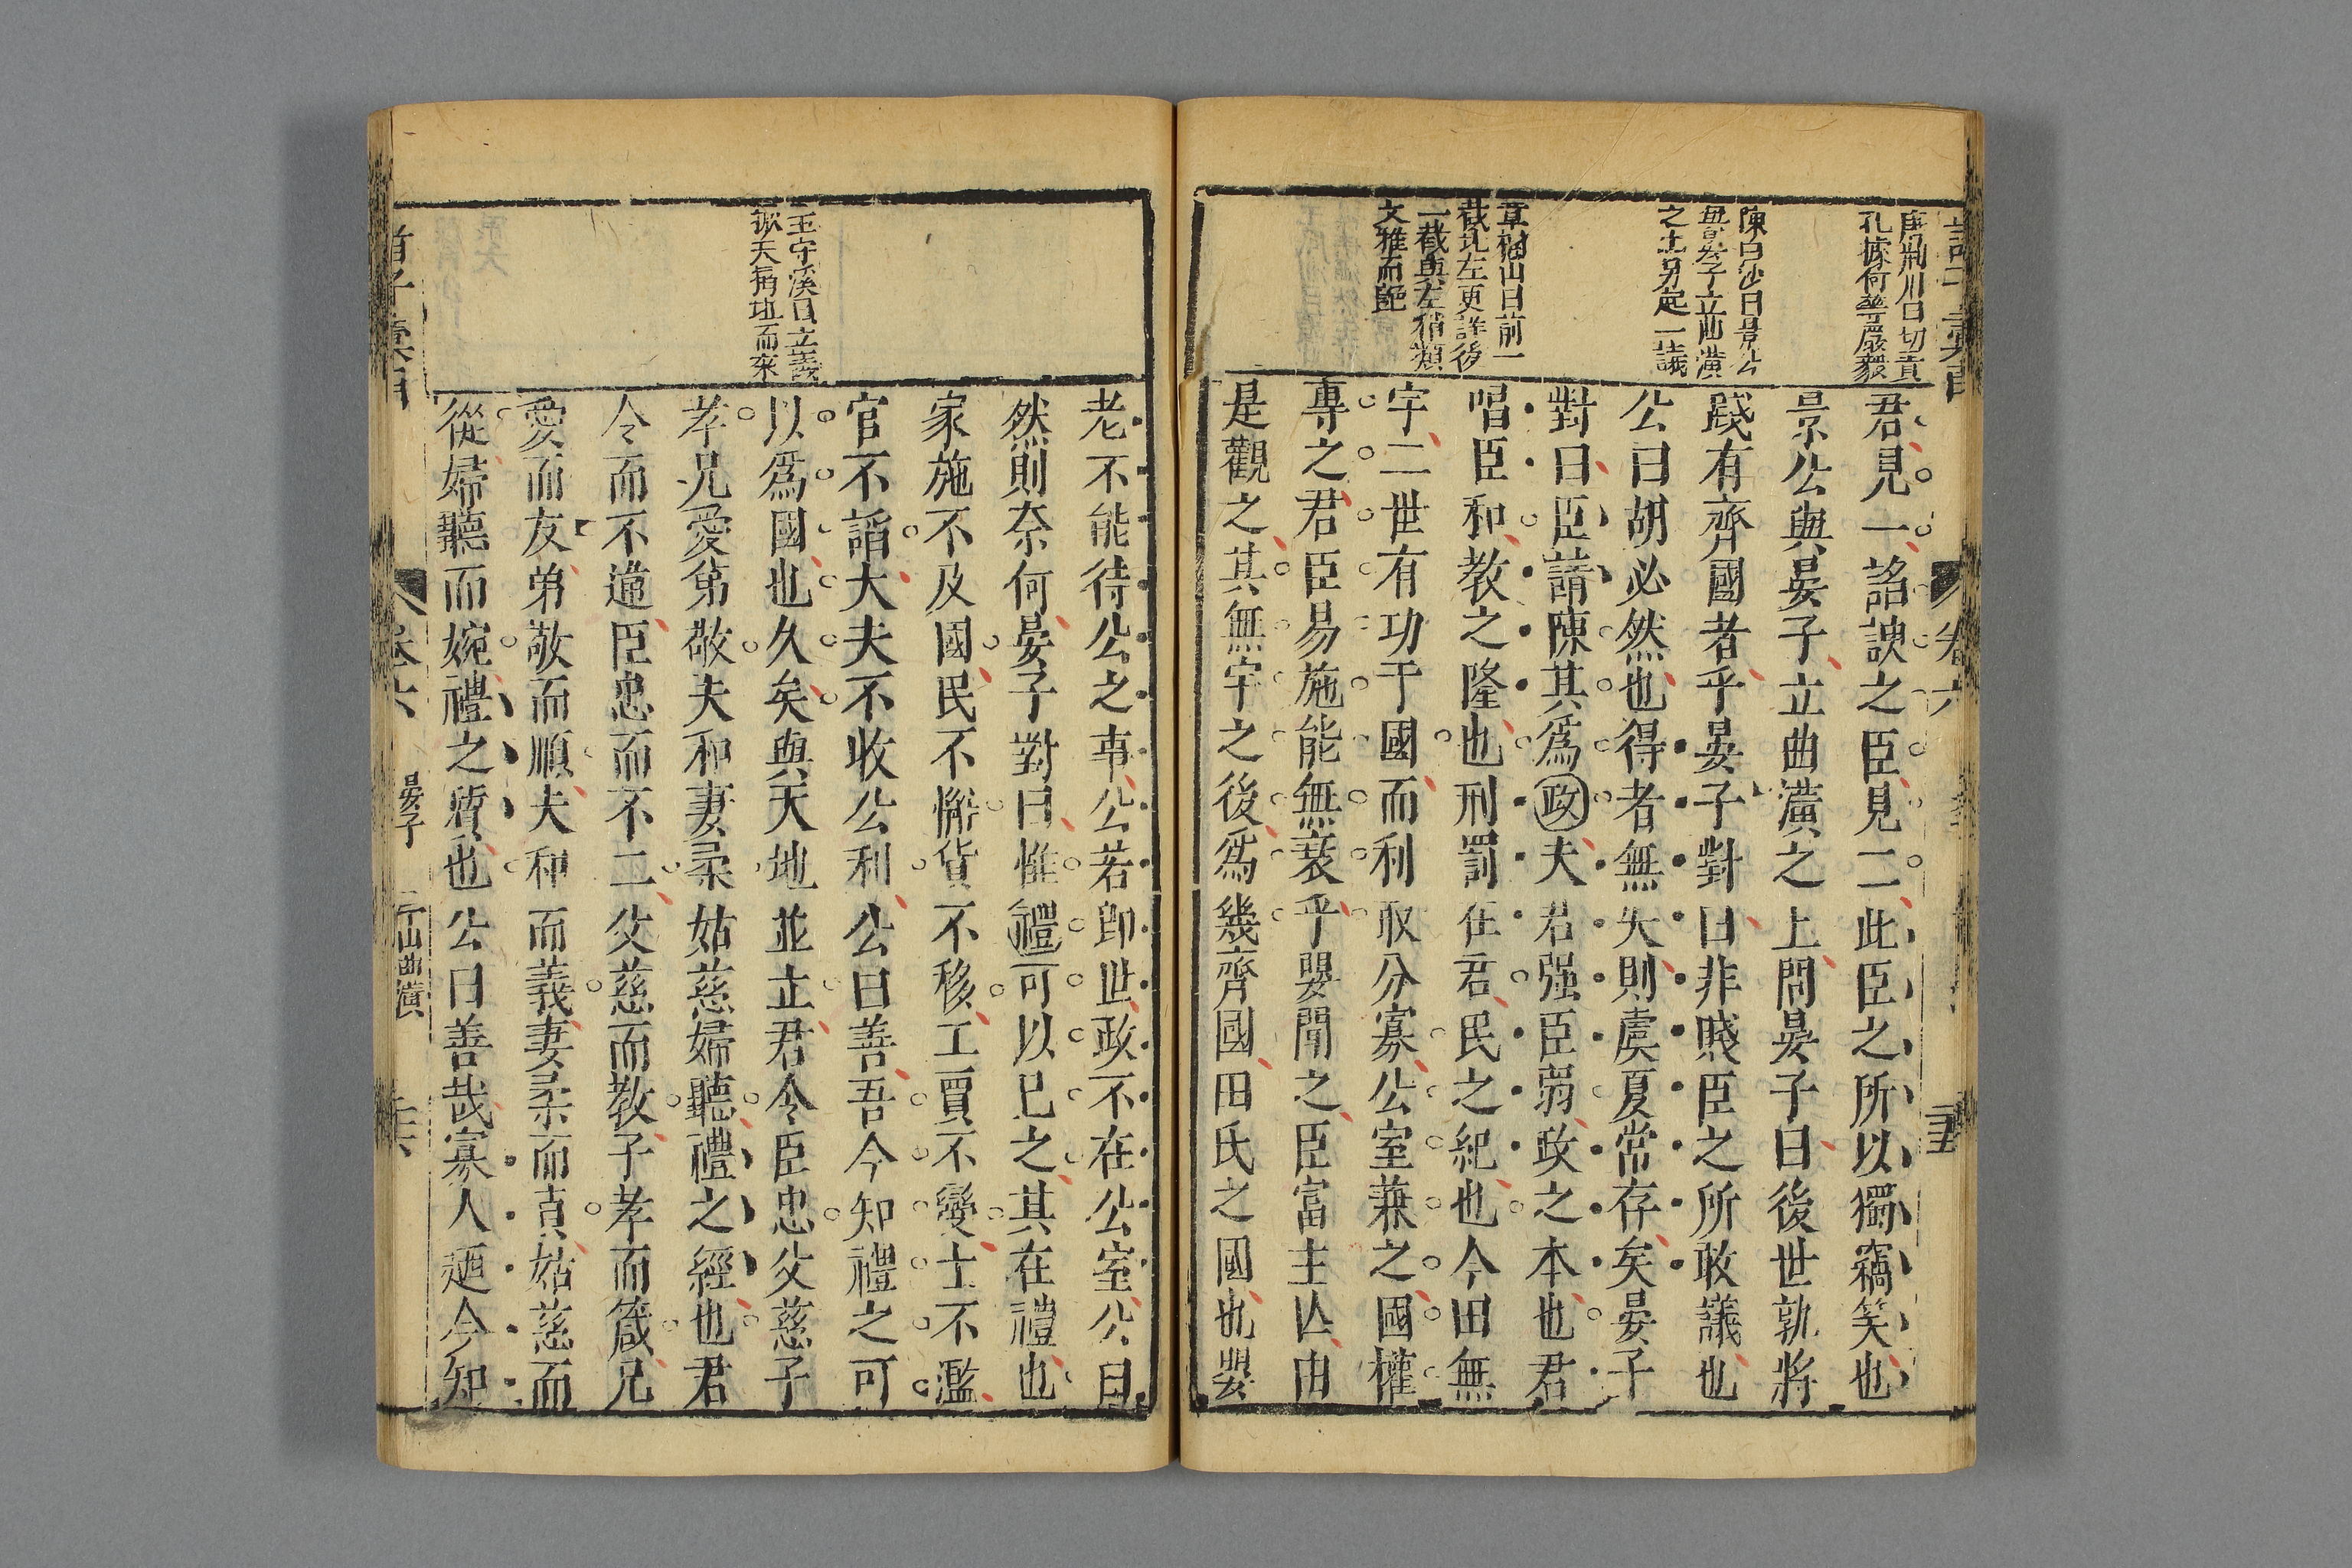 諸子彙函
卷六
唐荆川曰切責
孔據何等嚴毅
陳白沙曰景公
與晏子立曲潢
之上另定一議
章楓山曰前一
截比左更詳後
一截與左稍類
文雅而絕
君見一諂諛之臣見二此臣之所以獨竊笑也
景公與晏子立曲潢之上問晏子曰後世孰將
踐有齊國者乎晏子對曰非賤臣之所敢議也
公曰胡必然也得者無失則虞夏常存矣晏子
對曰臣請陳其爲政夫君强臣弱政之本也君
唱臣和教之隆也刑罰在君民之紀也今田無
宇二世有功于國而利取分寡公室兼之國權
專之君臣易施能無衰乎嬰聞之臣富主亾由
是觀之其無宇之後爲幾齊國田氏之國也嬰
王守溪曰立義
掀天揭地而來
老不能待公之事公若即世政不在公室公曰
然則奈何晏子對曰惟禮可以已之其在禮也
家施不及國民不懈貨不移工賈不變士不濫
官不謟大夫不收公利公曰善吾今知禮之可
以爲國也久矣與天地並立君令臣忠父慈子
孝兄愛弟敬夫和妻柔姑慈婦聽禮之經也君
令而不違臣忠而不二父慈而教子孝而箴兄
愛而友弟敬而順夫和而義妻柔而貞姑慈而
從婦聽而婉禮之質也公曰善哉寡人廼今知
卷六
晏子
曲潢